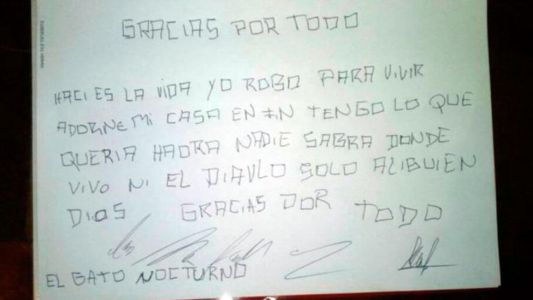 GRACIAS POR TODO
HACI ES LA VIDA YO ROBO PARA VIVIR
ADORNE MI CASA EN FIN TENGO LO QUE
QUERIA HAORA NADIE SABRA DONDE
VIVO NI EL DIAVLO SOLO ALIBUIEN
DIOS GRACIAS POR TODO
EL GATO NOCTURNO